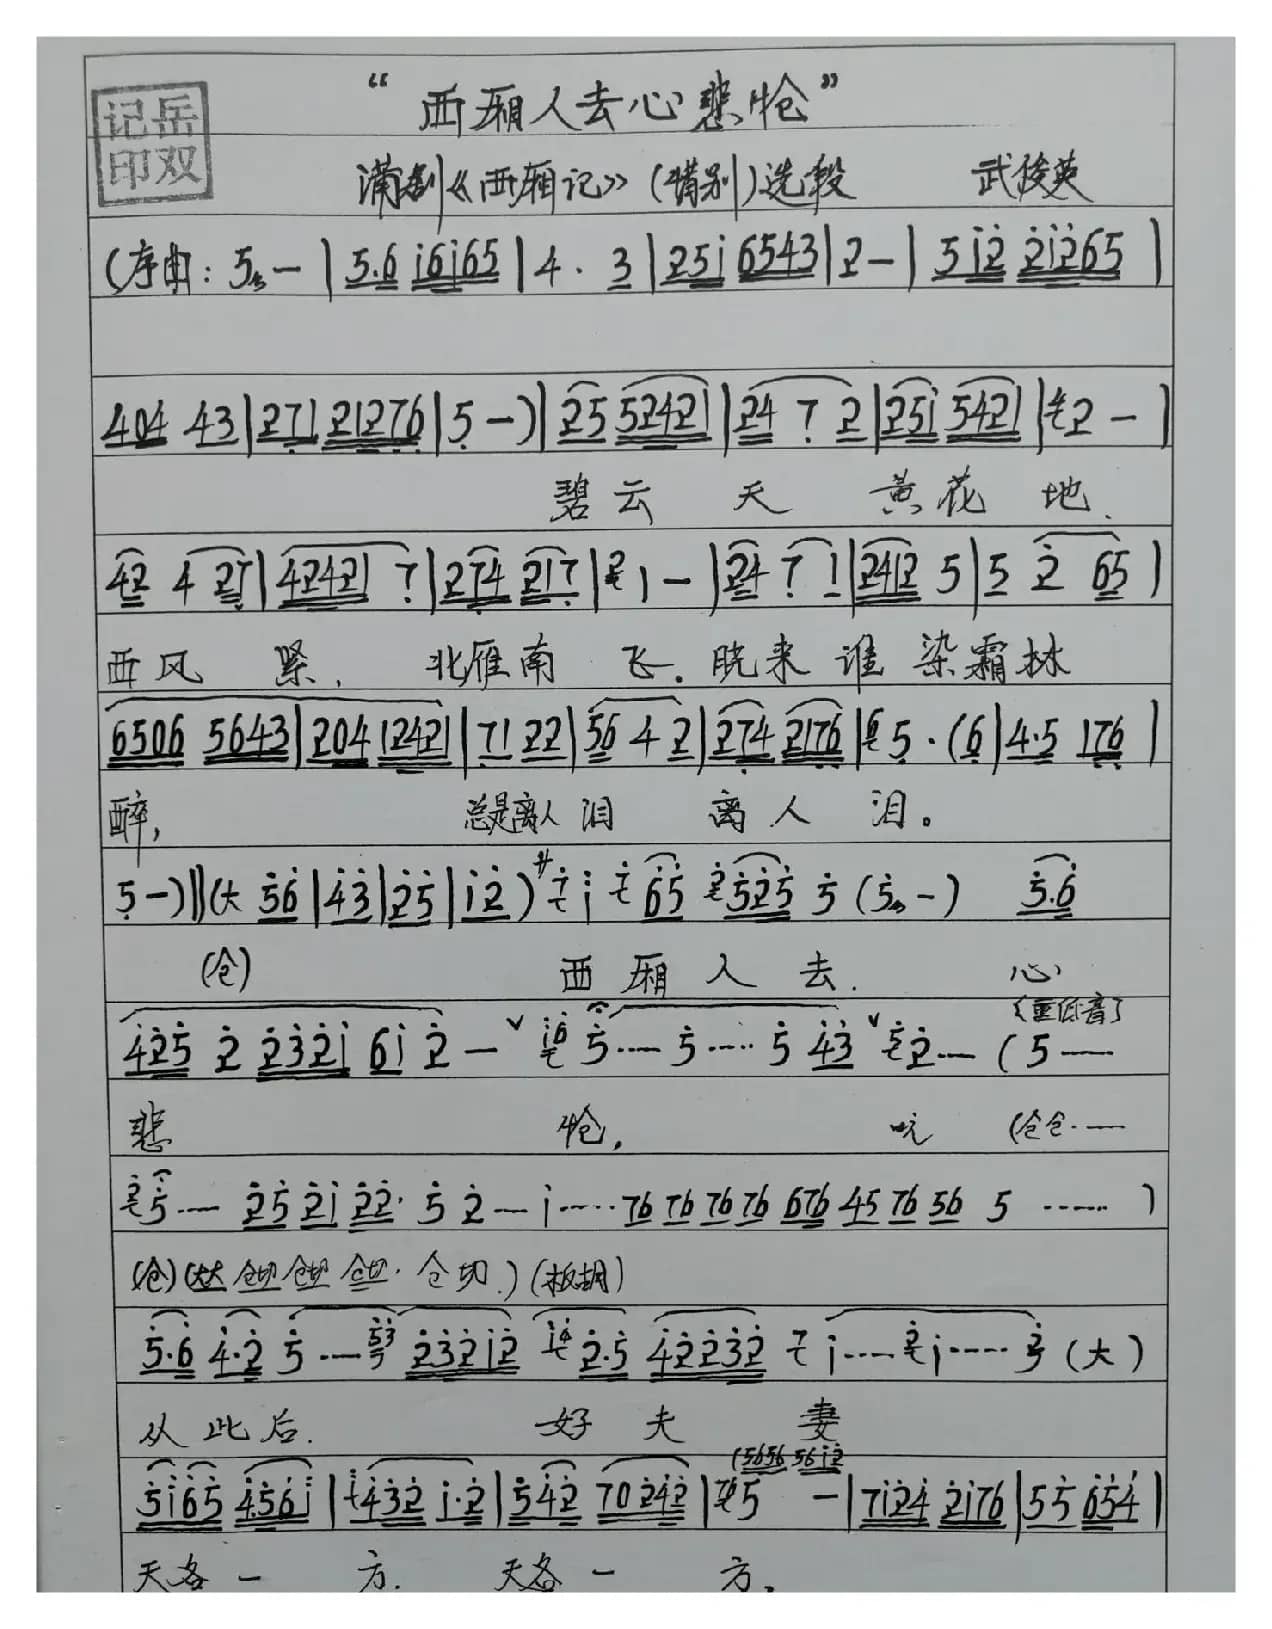 “西厢人去心悲怆”
岳双记印
蒲剧《西厢记》(惜别)选段 武俊英
(序曲: 5 — | 5.6 i6i65 | 4 · 3 | 25i 6543 | 2 — | 5i2 2i265 |
404 43 | 271 21276 | 5 — ) | 25 52421 | 24 7 2 | 25i 5421 | 2 — |
碧云天 黄花地.
42 4 27 | 42421 7 | 274 217 | 1 — | 24 7 1 | 2412 5 | 5 2 65 |
西风紧, 北雁南飞. 晓来谁染霜林
6506 5643 | 204 12421 | 71 22 | 56 4 2 | 274 2176 | 5 · (6 | 4·5 176 |
醉, 总是离人泪 离人泪。
5 — ) ‖ (大 56 | 43 | 25 | i2 ) i 65 525 5 (5 — ) 5.6
(仓) 西厢人去. 心
(重低音)
425 2 232i 6i 2 — 5 …… 5 …… 5 43 2 … ( 5 ……
悲怆, 吭 (仓仓……
5 … 25 2i 22· 5 2 … i …… 76 76 76 76 676 45 76 56 5 …… )
(仓) (大大 仓切 仓切 仓切· 仓切.) (板胡)
5·6 4·2 5 … 232i2 2·5 42232 i …… i …… 3 (大)
从此后. 好夫妻
(5656 56i2
5i65 456i | 432 i·2 | 542 70242 | 5 — | 7i24 2i76 | 55 654 |
天各一方. 天各一方.